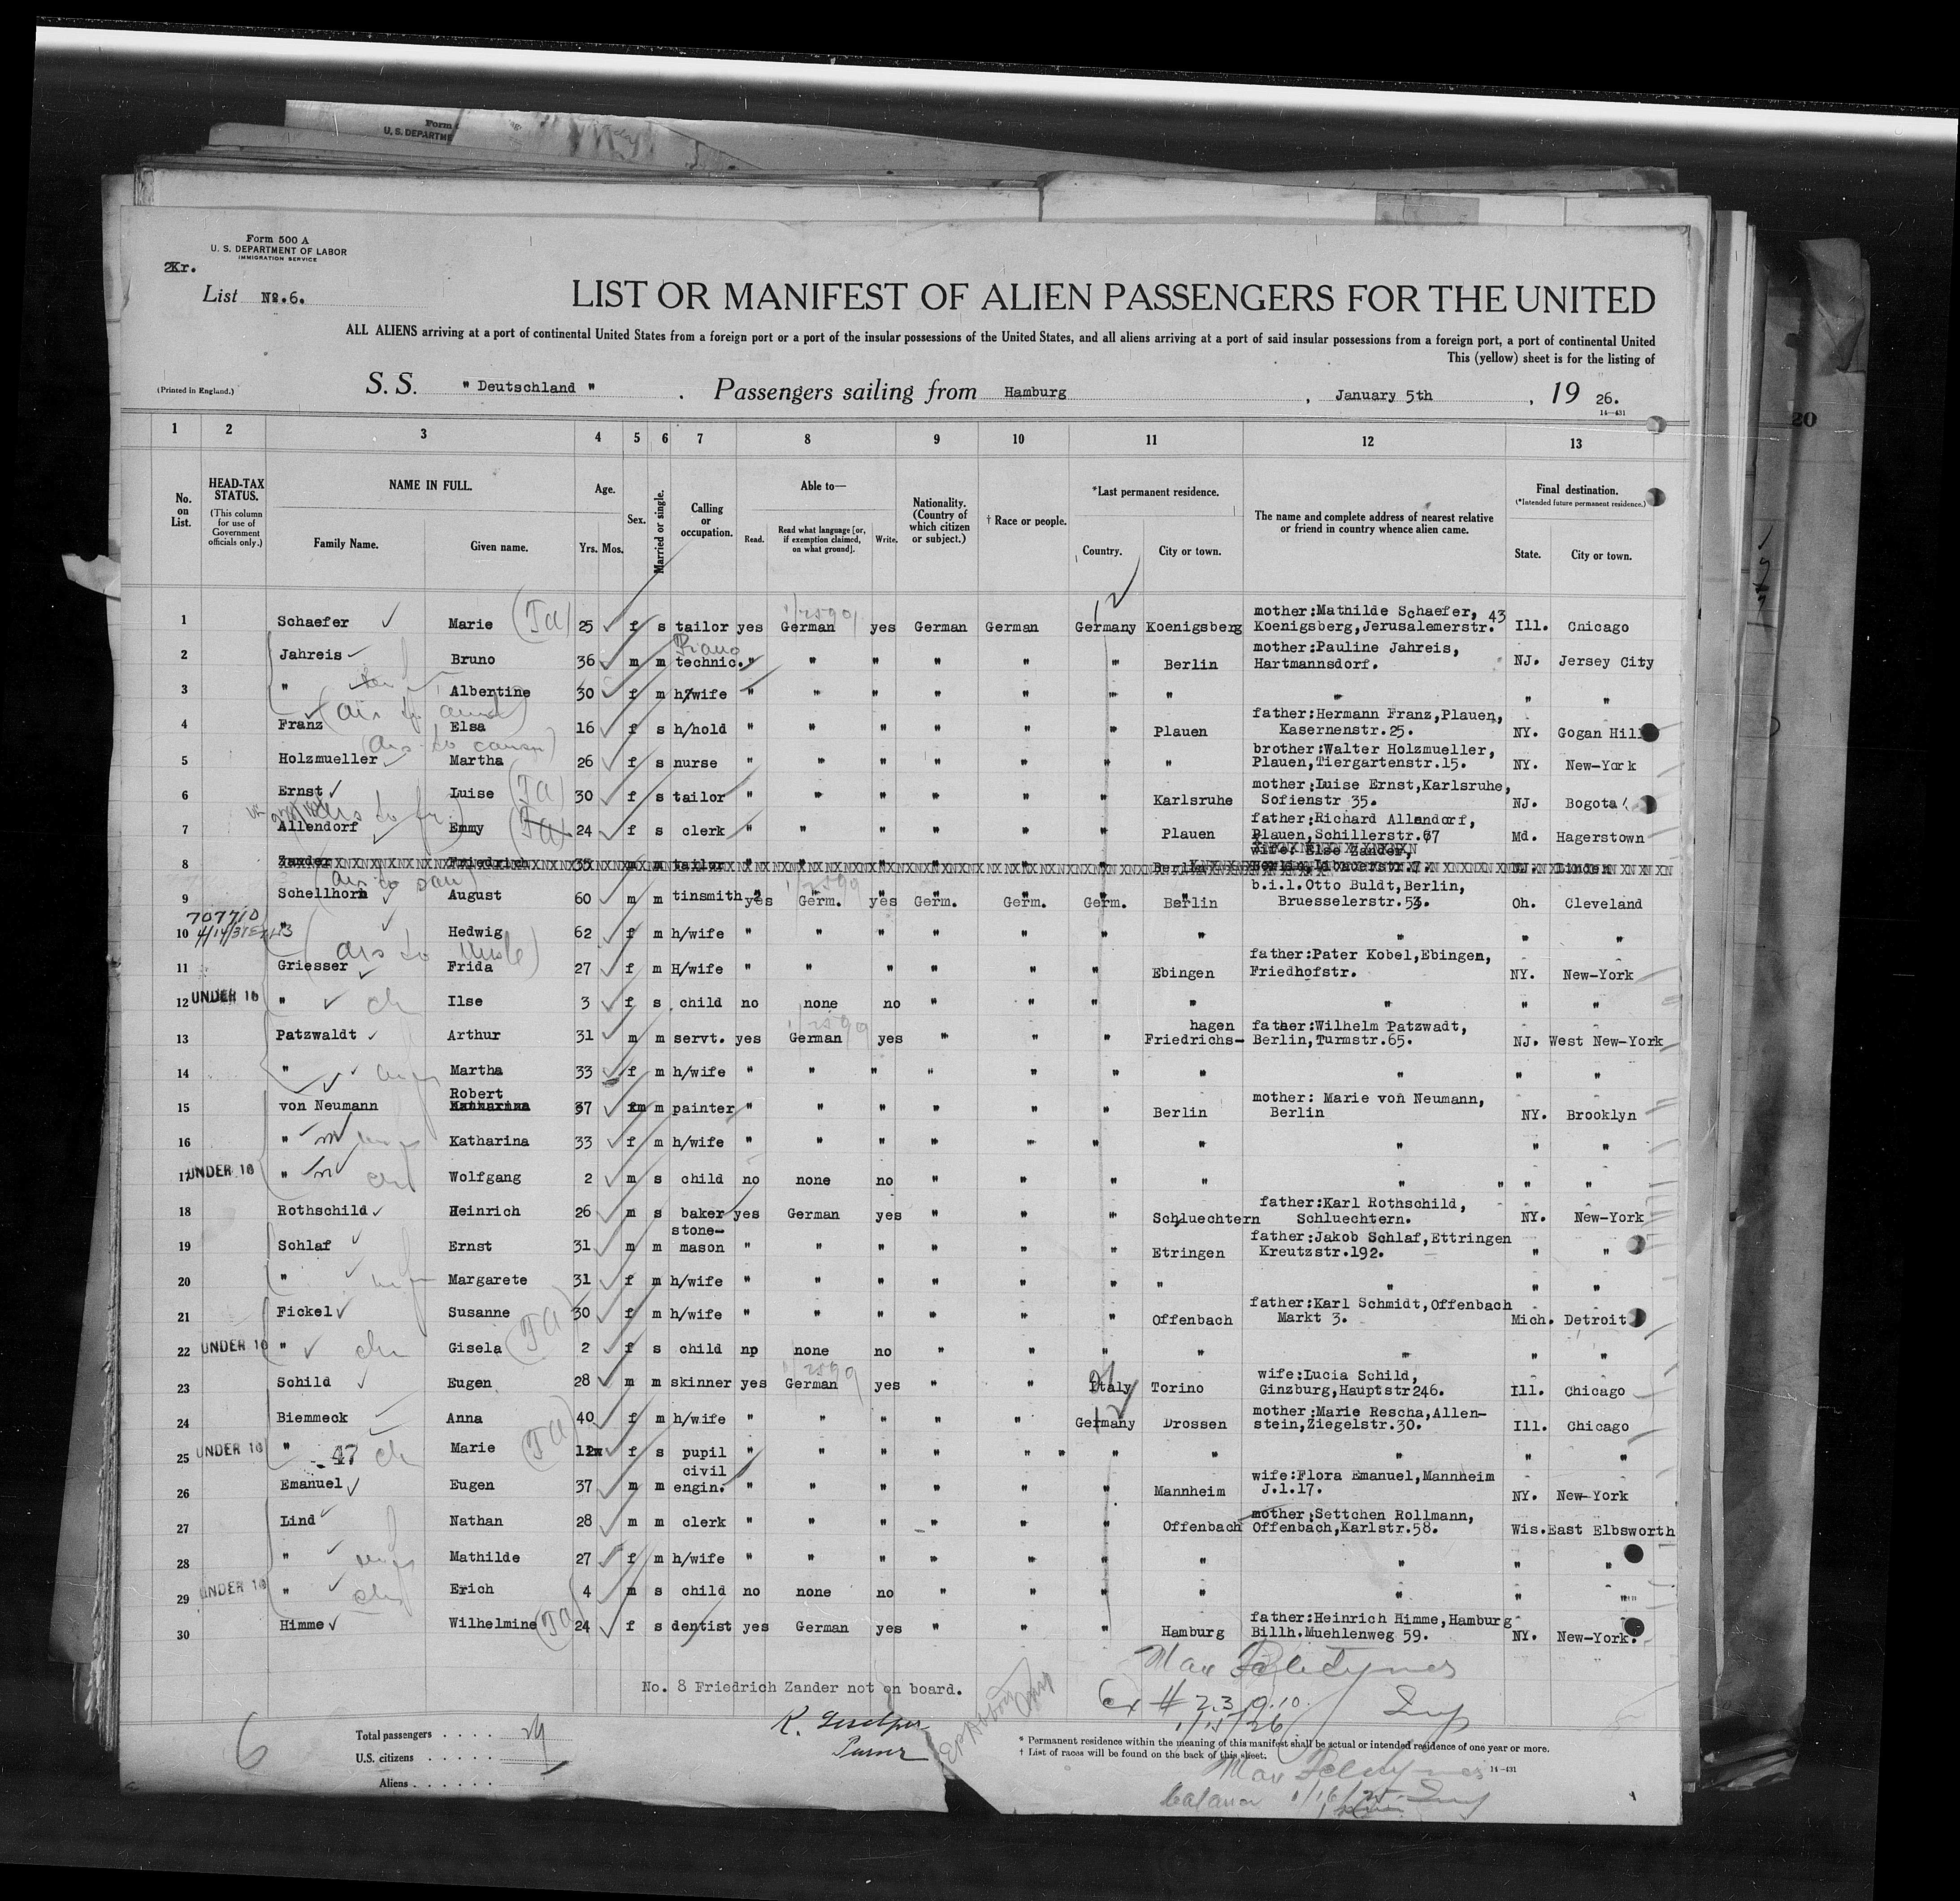 Form
U. S. DEPARTME
Form 500 A
U. S. DEPARTMENT OF LABOR
IMMIGRATION SERVICE
List No.6.
LIST OR MANIFEST OF ALIEN PASSENGERS FOR THE UNITED
ALL ALIENS arriving at a port of continental United States from a foreign port or a port of the insular possessions of the United States, and all aliens arriving at a port of said insular possessions from a foreign port, a port of continental United
This (yellow) sheet is for the listing of
(Printed in England.) S. S. " Deutschland " . Passengers sailing from Hamburg , January 5th , 19 26.
14-431
20
1 2 3 4 5 6 7 8 9 10 11 12 13
No. on List.
HEAD-TAX STATUS.
(This column for use of Government officials only.)
NAME IN FULL.
Family Name. Given name.
Age.
Yrs. Mos.
Sex.
Married or single.
Calling or occupation.
Able to—
Read. Read what language [or, if exemption claimed, on what ground]. Write.
Nationality. (Country of which citizen or subject.)
† Race or people.
*Last permanent residence.
Country. City or town.
The name and complete address of nearest relative or friend in country whence alien came.
Final destination.
(*Intended future permanent residence.)
State. City or town.
1 Schaefer Marie 25 f s tailor yes German yes German German Germany Koenigsberg mother:Mathilde Schaefer, 43 Koenigsberg,Jerusalemerstr. Ill. Chicago
2 Jahreis Bruno 36 m m Piano technic. " " " " " " Berlin mother:Pauline Jahreis, Hartmannsdorf. NJ. Jersey City
3 " Albertine 30 f m h/wife " " " " " " " " " "
4 Franz Elsa 16 f s h/hold " " " " " " Plauen father:Hermann Franz,Plauen, Kasernenstr.25. NY. Gogan Hill
5 Holzmueller Martha 26 f s nurse " " " " " " " brother:Walter Holzmueller, Plauen,Tiergartenstr.15. NY. New-York
6 Ernst Luise 30 f s tailor " " " " " " Karlsruhe mother:Luise Ernst,Karlsruhe, Sofienstr 35. NJ. Bogota
7 Allendorf Emmy 24 f s clerk " " " " " " Plauen father:Richard Allendorf, Plauen,Schillerstr.67 Md. Hagerstown
8 Zander Friedrich 35 m m tailor " " " " " " Berlin wife: Else Zander, NJ. Linden
9 Schellhorn August 60 m m tinsmith yes Germ. yes Germ. Germ. Germ. Berlin b.i.l.Otto Buldt,Berlin, Bruesselerstr.53. Oh. Cleveland
707710
10 " Hedwig 62 f m h/wife " " " " " " " " " "
11 Griesser Frida 27 f m H/wife " " " " " " Ebingen father:Pater Kobel,Ebingen, Friedhofstr. NY. New-York
12 UNDER 16 " Ilse 3 f s child no none no " " " " " " "
13 Patzwaldt Arthur 31 m m servt. yes German yes " " " Friedrichs-hagen father:Wilhelm Patzwadt, Berlin,Turmstr.65. NJ. West New-York
14 " Martha 33 f m h/wife " " " " " " " " " "
15 von Neumann Robert 37 m m painter " " " " " " Berlin mother: Marie von Neumann, Berlin NY. Brooklyn
16 " Katharina 33 f m h/wife " " " " " " " " " "
17 UNDER 16 " Wolfgang 2 m s child no none no " " " " " " "
18 Rothschild Heinrich 26 m s baker yes German yes " " " Schluechtern father:Karl Rothschild, Schluechtern. NY. New-York
19 Schlaf Ernst 31 m m stone-mason " " " " " " Etringen father:Jakob Schlaf,Ettringen Kreutzstr.192. " "
20 " Margarete 31 f m h/wife " " " " " " " " " "
21 Fickel Susanne 30 f m h/wife " " " " " " Offenbach father:Karl Schmidt,Offenbach Markt 3. Mich. Detroit
22 UNDER 16 " Gisela 2 f s child np none no " " " " " " "
23 Schild Eugen 28 m m skinner yes German yes " " Italy Torino wife:Lucia Schild, Ginzburg,Hauptstr246. Ill. Chicago
24 Biemmeck Anna 40 f m h/wife " " " " " Germany Drossen mother:Marie Rescha,Allen-stein,Ziegelstr.30. Ill. Chicago
25 UNDER 16 " 47 Marie 11 f s pupil " " " " " " " " " "
26 Emanuel Eugen 37 m m civil engin. " " " " " " Mannheim wife:Flora Emanuel,Mannheim J.1.17. NY. New-York
27 Lind Nathan 28 m m clerk " " " " " " Offenbach mother:Settchen Rollmann, Offenbach,Karlstr.58. Wis. East Elbsworth
28 " Mathilde 27 f m h/wife " " " " " " " " " "
29 UNDER 16 " Erich 4 m s child no none no " " " " " " "
30 Himme Wilhelmine 24 f s dentist yes German yes " " " Hamburg father:Heinrich Himme,Hamburg Billh.Muehlenweg 59. NY. New-York.
No. 8 Friedrich Zander not on board.
6
Total passengers . . . . 29
U.S. citizens . . . . .
Aliens . . . . . .
* Permanent residence within the meaning of this manifest shall be actual or intended residence of one year or more.
† List of races will be found on the back of this sheet.
14-431